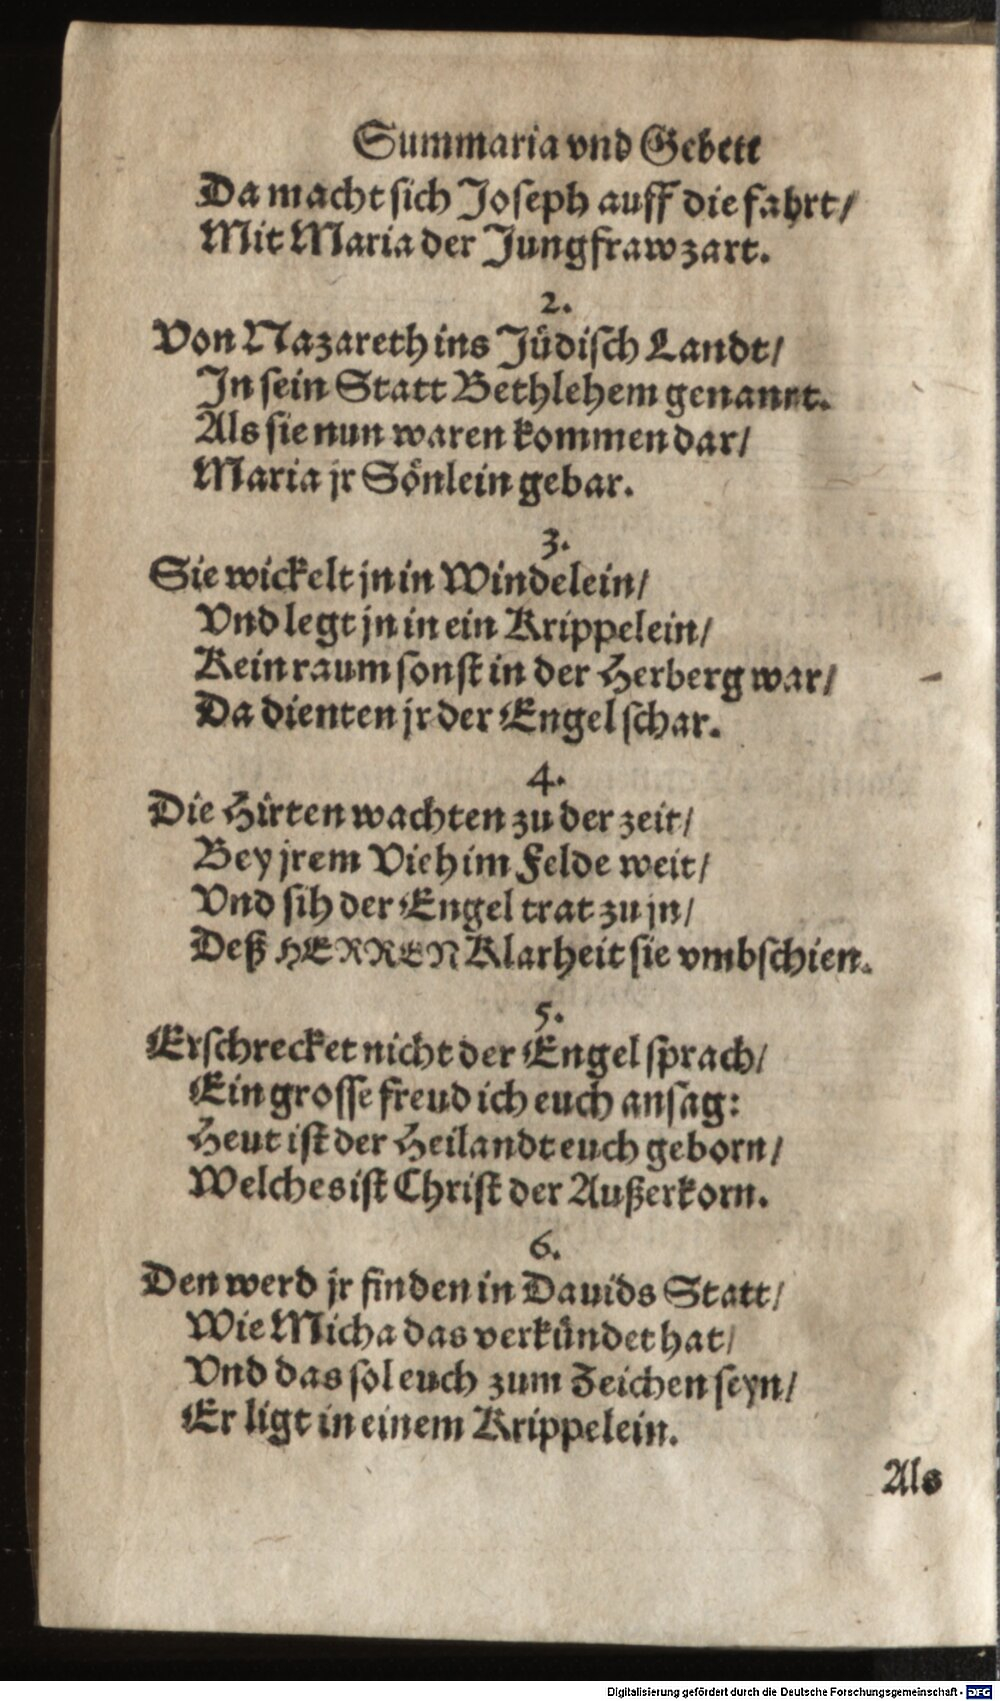 Summaria vnd Gebett
Da macht sich Joseph auff die fahrt/
Mit Maria der Jungfraw zart.
2.
Von Nazareth ins Jüdisch Landt/
In sein Statt Bethlehem genannt.
Als sie nun waren kommen dar/
Maria jr Sönlein gebar.
3.
Sie wickelt jn in Windelein/
Vnd legt jn in ein Krippelein/
Kein raum sonst in der Herberg war/
Da dienten jr der Engel schar.
4.
Die Hirten wachten zu der zeit/
Bey jrem Vieh im Felde weit/
Vnd sih der Engel trat zu jn/
Deß HERREN Klarheit sie vmbschien.
5.
Erschrecket nicht der Engel sprach/
Ein grosse freud ich euch ansag:
Heut ist der Heilandt euch geborn/
Welches ist Christ der Außerkorn.
6.
Den werd jr finden in Dauids Statt/
Wie Micha das verkündet hat/
Vnd das sol euch zum Zeichen seyn/
Er ligt in einem Krippelein.
Als
Digitalisierung gefördert durch die Deutsche Forschungsgemeinschaft - DFG